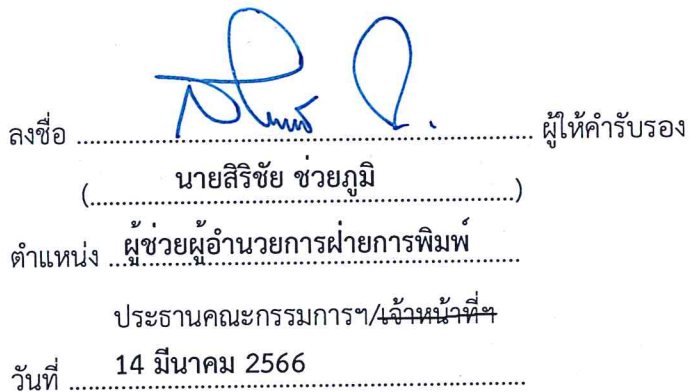 ลงชื่อ ........................................ ผู้ให้คำรับรอง
(นายสิริชัย ช่วยภูมิ)
ตำแหน่ง ผู้ช่วยผู้อำนวยการฝ่ายการพิมพ์
ประธานคณะกรรมการฯ/เจ้าหน้าที่ฯ
วันที่ 14 มีนาคม 2566